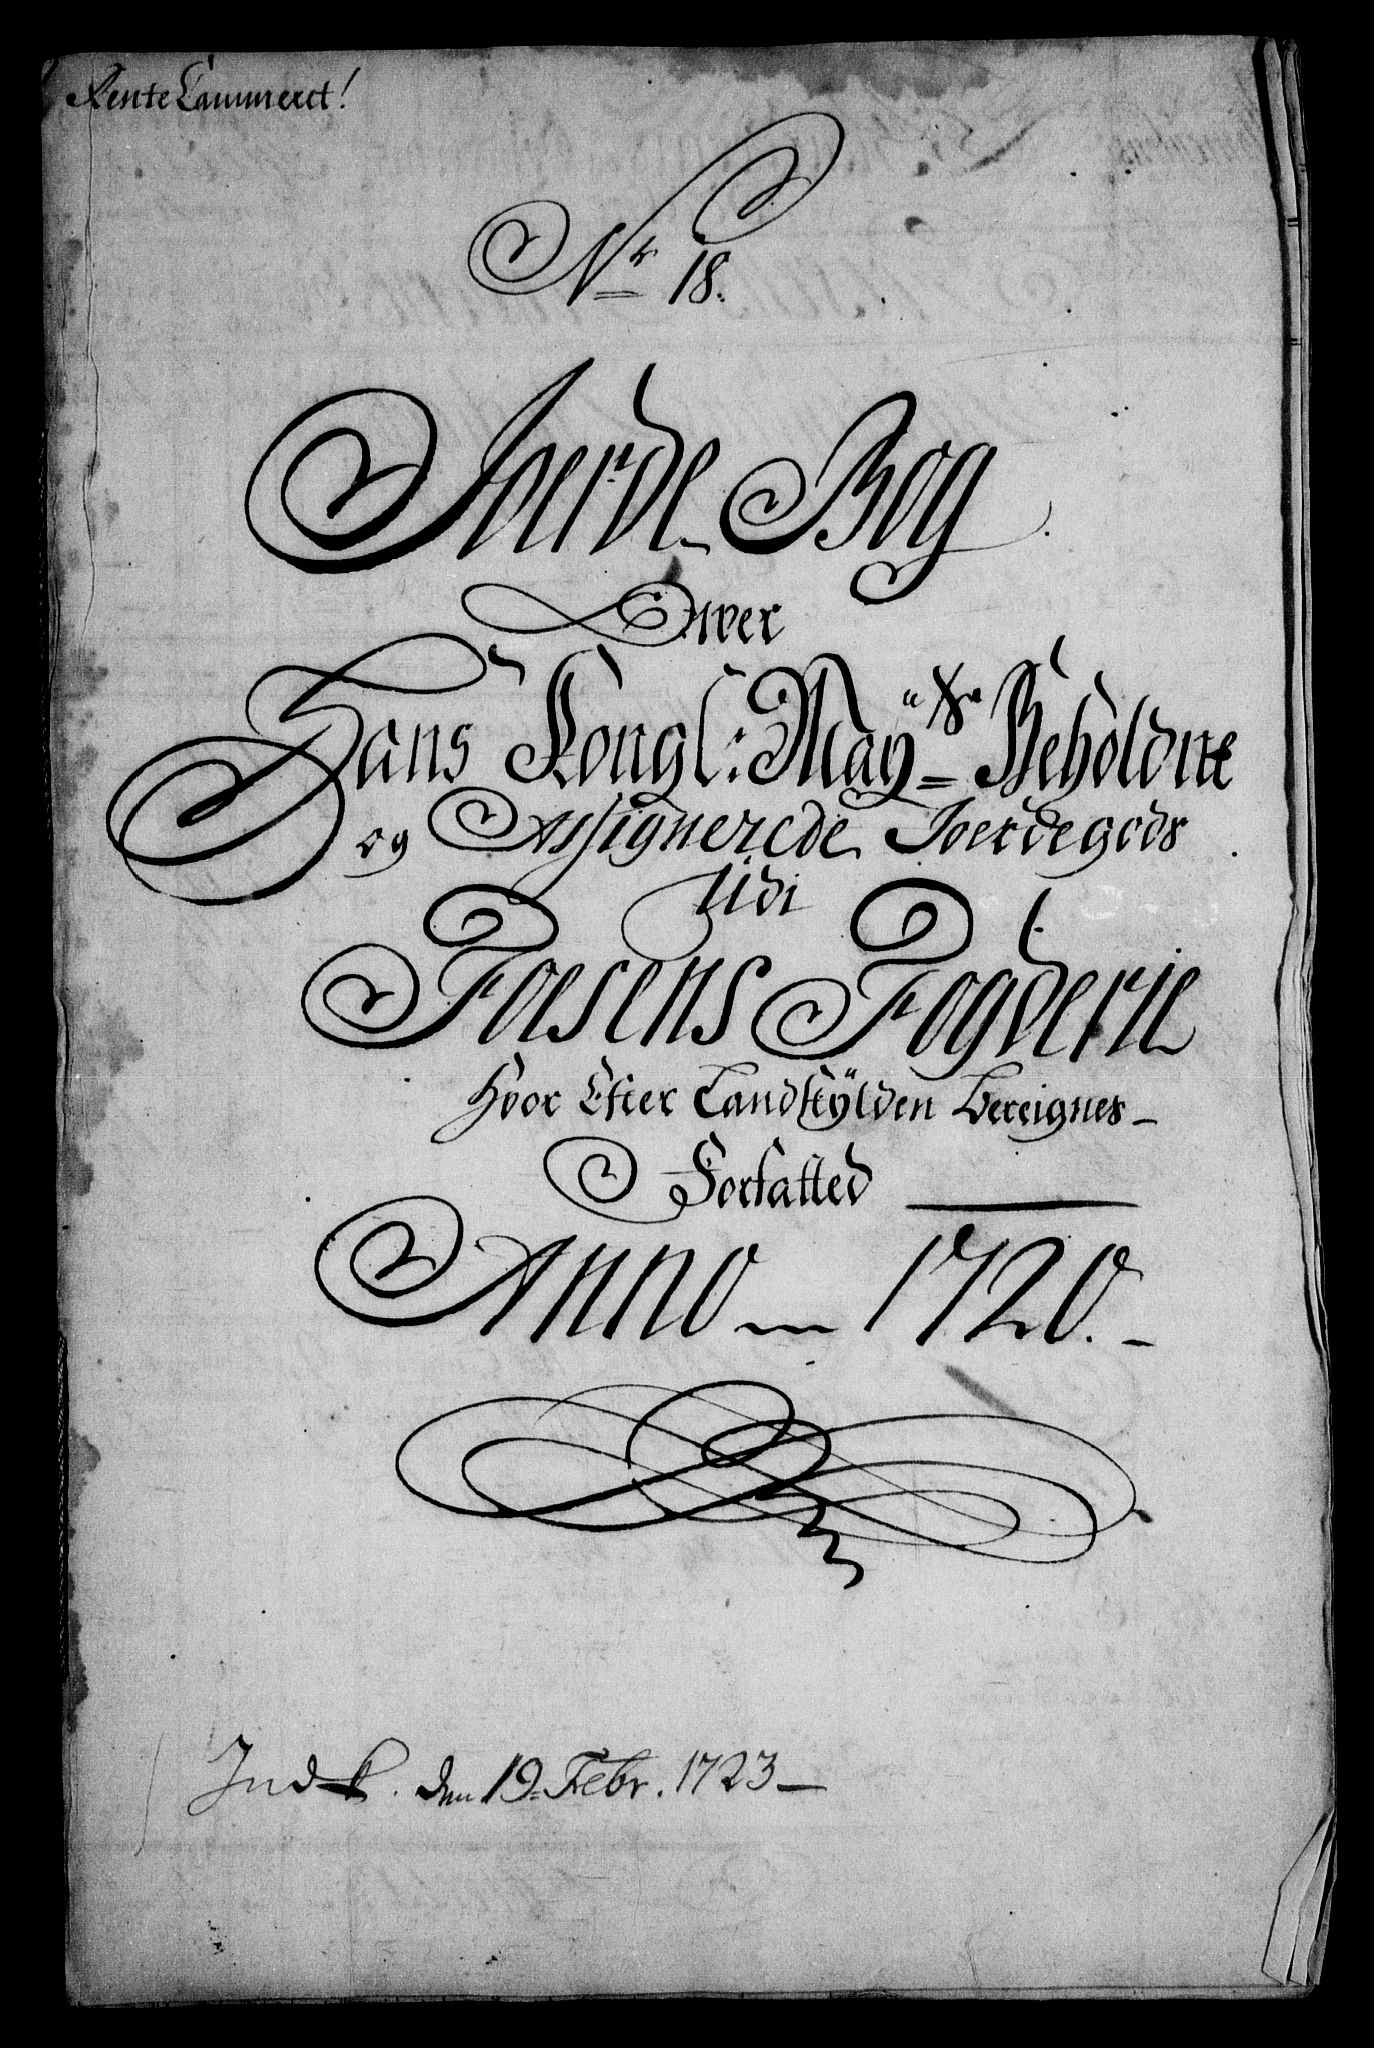 Rente Cammeret!
Nr 18.
Joerde-Bog
Over
Hans Kongl: Mayts Beholdne
og Assignerede Joerdegods
Udi
Foesens Fogderie
Hvor Efter Landskÿlden bereignes-
Forfatted
Anno 1720.
Ind k. den 19. Febr. 1723